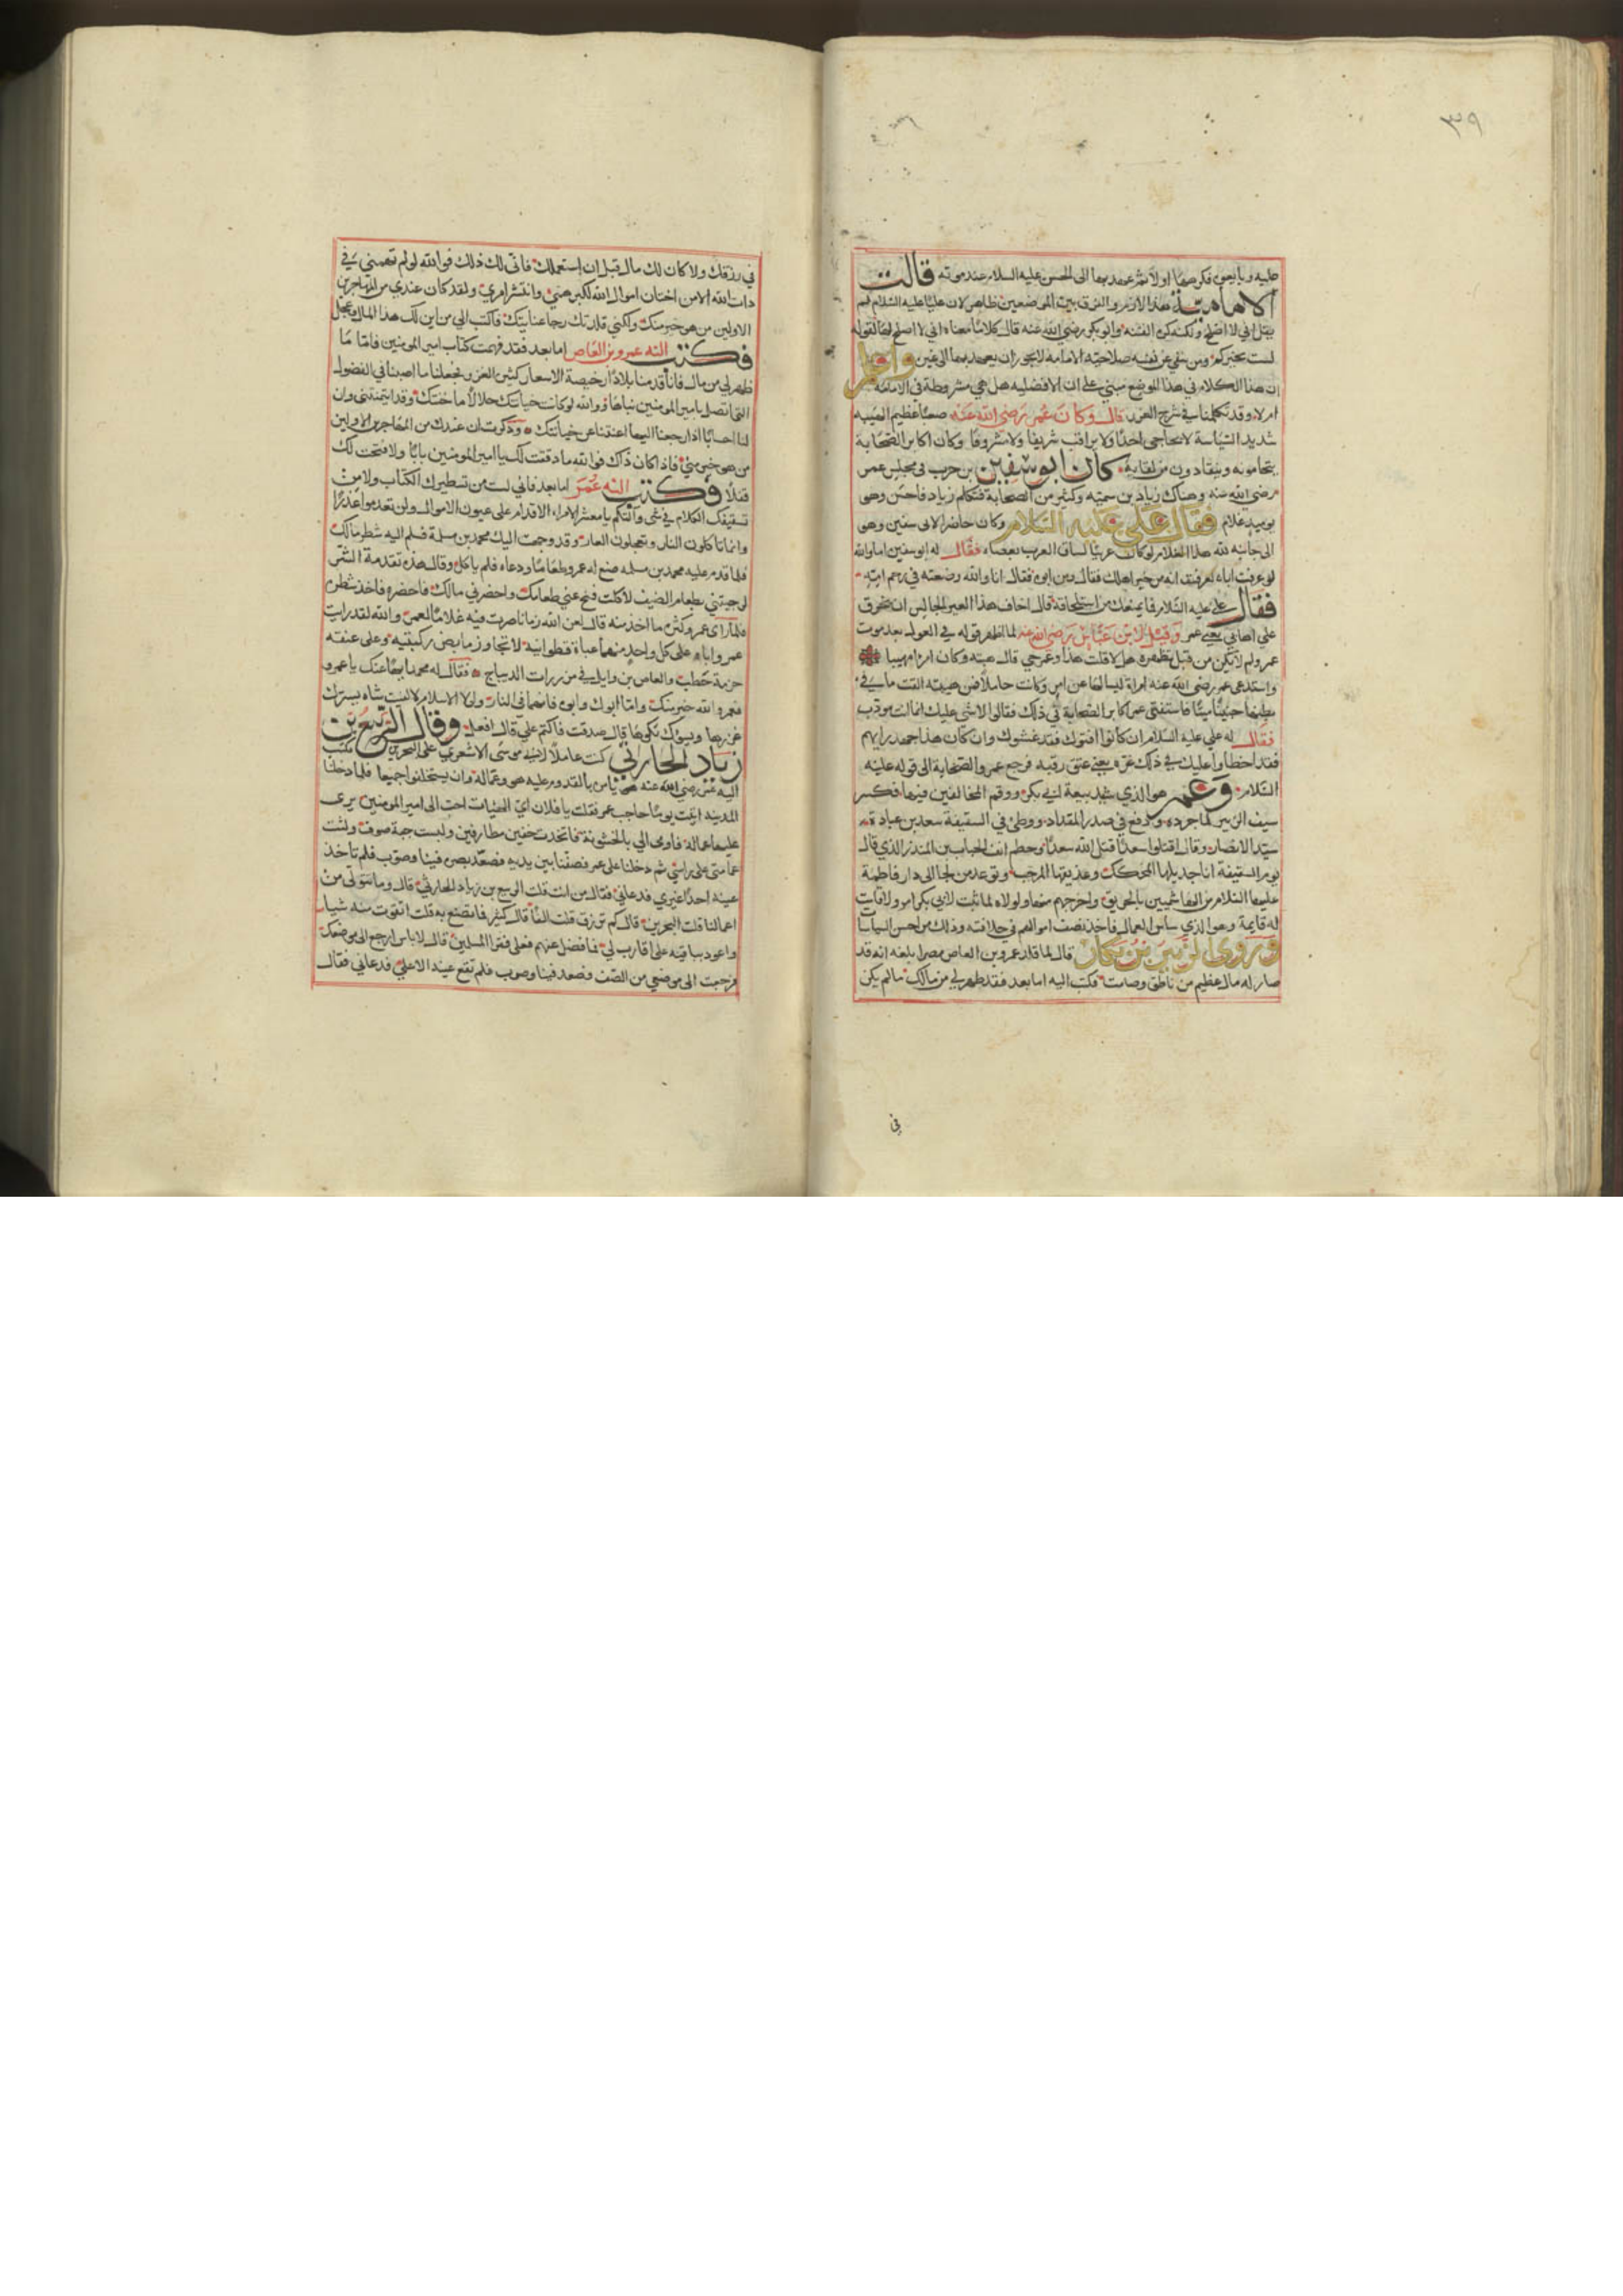 ٣٩
عليه وبايعوه فكرهها اولا ثم عهد بها الى الحسن عليه السلام عند موته قالت
الامامية هذا لازم والفرق بين الموضعين ظاهر لان عليا عليه السلام لم
يقل اني لا اصلح ولكنه كره الفتنه وابو بكر رضي الله عنه قال كلاما معناه اني لا اصلح لها لقوله
لست بخيركم ومن نفى عن نفسه صلاحية الامامه لا يجوز ان يعهد بها الى غيره واعلم
ان هذا الكلام في هذا الموضع مبني على ان الافضليه هل هي مشروطة في الامامة
ام لا وقد تكلمنا في شرح الغرر قال وكان عمر رضي الله عنه صعبا عظيم الهيبه
شديد السياسة لا يحابي احدا ولا يراقب شريفا ولا مشروفا وكان اكابر الصحابة
يتحامونه ويتفادون من لقايه كان ابو سفين بن حرب في مجلس عمر
رضي الله عنه وهناك زياد بن سميه وكثير من الصحابة فتكلم زياد فاحسن وهو
يوميذ غلام فقال علي عليه السلام وكان حاضرا لابي سفين وهو
الى جانبه لله هذا الغلام لو كان عربيا لساق العرب بعصاه فقال له ابو سفين اما والله
لو عرفت اباه لعرفت انه من خير اهلك فقال ومن ابوه فقال انا والله وضعته في رحم امه
فقال علي عليه السلام فما يمنعك من استلحاقه قال اخاف هذا العير الجالس ان يخرق
علي اهابي يعني عمر وقيل لابن عباس رضي الله عنه لما اظهر قوله في العول بعد موت
عمر ولم لا يكن من قبل تظهره هل لا قلت هذا وعمر حي قال هبته وكان امرا مهيبا
واستدعى عمر رضي الله عنه امراة ليسالها عن امر وكانت حاملا فمن هيبته القت ما في
بطنها جنينا ميتا فاستفتى عمر اكابر الصحابة في ذلك فقالوا لا شي عليك انما انت مودب
فقال له علي عليه السلام ان كانوا افتوك فقد غشوك وان كان هذا جهد رايهم
فقد اخطاوا عليك في ذلك غره يعني عتق رقبه فرجع عمر والصحابة الى قوله عليه
السلام وعمر هو الذي شيد بيعة لابي بكر ووقم المخالفين فيها فكسر
سيف الزبير لما جرده ودفع في صدر المقداد ووطئ في السقيفة سعد بن عبادة
سيد الانصار وقال اقتلوا سعدا قتل الله سعدا وحطم انف الحباب بن المنذر الذي قال
يوم السقيفة انا جذيلها المحكك وعذيقها المرجب وتوعد من لجا الى دار فاطمة
عليها السلام من الهاشميين بالحريق واخرجهم منها ولولاه لما ثبت لابي بكر امر ولا قامت
له قايمة وهو الذي ساس العمال فاخذ نصف اموالهم في خلافته وذلك من احسن السياسا
وروى الزبير بن بكار قال لما قلد عمرو بن العاص مصرا بلغه انه قد
صار له مال عظيم من ناطق وصامت فكتب اليه اما بعد فقد ظهر لي من مالك ما لم يكن
في
في رزقك ولا كان لك مال قبل ان استعملك فانى لك ذلك فوالله لو لم يهمني في
ذات الله الا من اختان اموال الله لكبر همي وانتشر امري ولقد كان عندي من المهاجرين
الاولين من هو خير منك ولكني قلدتك رجا عنايتك فاكتب الي من اين لك هذا المال وعجل
فكتب اليه عمرو بن العاص اما بعد فقد فهمت كتاب امير المومنين فاما ما
ظهر لي من مال فانا قدمنا بلادا رخيصة الاسعار كثير الغزو فجعلنا ما اصبنا في الفضول
التي اتصل بامير المومنين نباها ووالله لو كانت خيانتك حلالا ما خنتك وقد ايتمنتني وان
لنا احسابا اذا رجعنا اليها اغنتنا عن خيانتك وذكرت ان عندك من المهاجرين الاولين
من هو خير مني فاذا كان ذاك فوالله ما دققت لك يا امير المومنين بابا ولا فتحت لك
قفلا فكتب اليه عمر اما بعد فاني لست من تسطيرك الكتاب ولا من
تشقيقك الكلام في شي وانكم يا معشر الامراء الاقدام على عيون الاموال ولن تعدموا عذرا
وانما تاكلون النار وتتعجلون العار وقد وجهت اليك محمد بن مسلمة فسلم اليه شطر مالك
فلما قدم عليه محمد بن مسلمه صنع له عمرو طعاما ودعاه فلم ياكل وقال هذه تقدمة الشر
لو جيتني بطعام الضيف لاكلت فنح عني طعامك واحضر لي مالك فاحضره فاخذ شطره
فلما راى عمرو كثرة ما اخذ منه قال لعن الله زمانا صرت فيه غلاما لعمر والله لقد رايت
عمر واباه على كل واحد منهما عباة قطوانية لا تجاوز مابض ركبتيه وعلى عنقه
حزمة حطب والعاص بن وايل في مزررات الديباج فقال له محمد ايها عنك يا عمرو
فعمر والله خير منك واما ابوك وابوه فانهما في النار ولولا الاسلام لالفيت شاه يسرك
غزرها ويسوك بكوها قال صدقت فاكتم علي قال افعل وقال الربيع بن
زياد الحارثي كنت عاملا لابي موسى الاشعري على البحرين فكتب
اليه عمر رضي الله عنه يامره بالقدوم عليه هو وعماله وان يستخلفوا جميعا فلما دخلنا
المدينه اتيت يوما حاجب عمر فقلت يا فلان اي الهيات احب الى امير المومنين يرى
عليها عماله فاومى الي بالخشونة فاتخذت خفين مطارقين ولبست جبة صوف ولثت
عمامتي على راسي ثم دخلنا على عمر فصفنا بين يديه فصعد بصره فينا وصوب فلم تاخذ
عينه احدا غيري فدعاني فقال من انت قلت الربيع بن زياد الحارثي قال وما تتولى من
اعمالنا قلت البحرين قال كم ترزق قلت الفا قال كثير فما تصنع به قلت اتقوت منه شيا
واعود بباقيه على اقارب لي فما فضل عنهم فعلى فقرا المسلمين قال لا باس ارجع الى موضعك
فرجعت الى موضعي من الصف فصعد فينا وصوب فلم تقع عينه الا علي فدعاني فقال